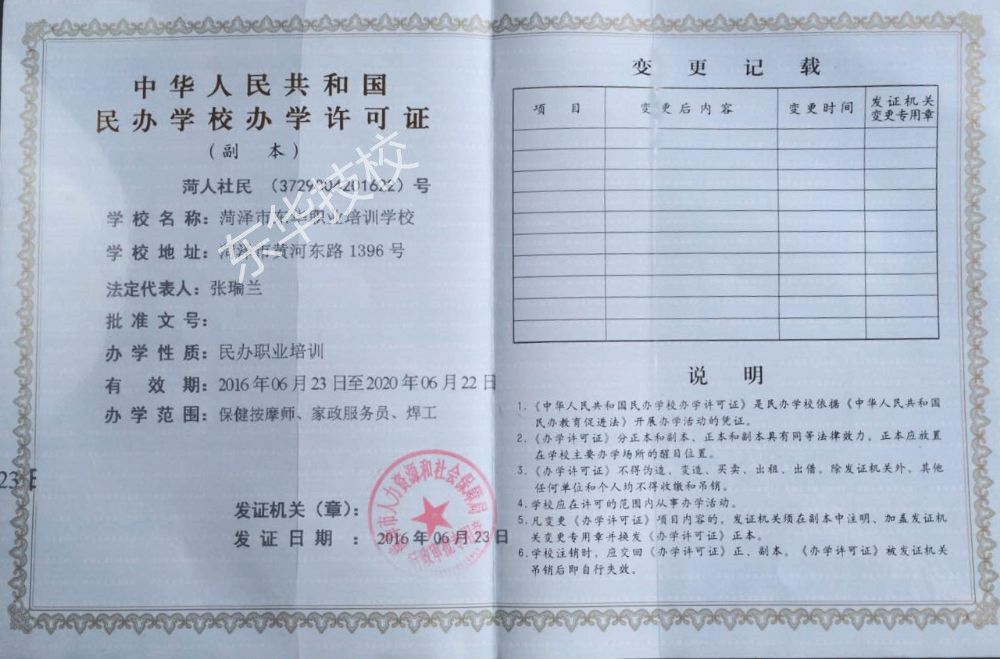 中华人民共和国
民办学校办学许可证
（副 本）
菏人社民 （3729004201622）号
学校名称：菏泽市东华职业培训学校
学校地址：菏泽市黄河东路1396号
法定代表人：张瑞兰
批准文号：
办学性质：民办职业培训
有 效 期：2016年06月23日至2020年06月22日
办学范围：保健按摩师、家政服务员、焊工
23日
发证机关（章）：
发证日期 ：2016年06月23日
市人力资源和社会保障局
行政审批专用章
东华技校
变更记载
项 目
变更后内容
变更时间
发证机关
变更专用章
说 明
1．《中华人民共和国民办学校办学许可证》是民办学校依据《中华人民共和国
民办教育促进法》开展办学活动的凭证。
2．《办学许可证》分正本和副本，正本和副本具有同等法律效力，正本应放置
在学校主要办学场所的醒目位置。
3．《办学许可证》不得伪造、变造、买卖、出租、出借。除发证机关外，其他
任何单位和个人均不得收缴和吊销。
4．学校应在许可的范围内从事办学活动。
5．凡变更《办学许可证》项目内容的，发证机关须在副本中注明、加盖发证机
关变更专用章并换发《办学许可证》正本。
6．学校注销时，应交回《办学许可证》正、副本。《办学许可证》被发证机关
吊销后即自行失效。